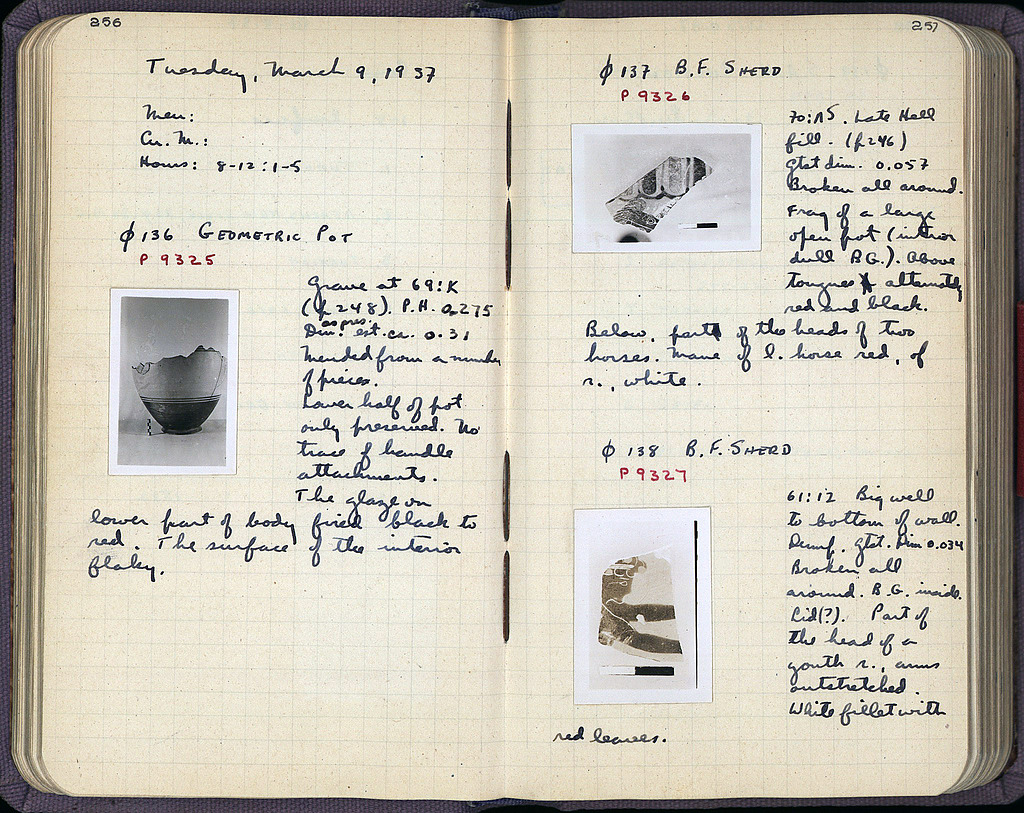 256
Tuesday, March 9, 1937
Men:
Cu. M.:
Hours: 8-12:1-5
ϕ 136 GEOMETRIC POT
P 9325
Grave at 69:K
(p. 248). P.H. 0.275
as pres.
Dim. est. ca. 0.31
Mended from a number
of pieces.
Lower half of pot
only preserved. No
trace of handle
attachments.
The glaze on
lower part of body fired black to
red. The surface of the interior
flaky.
257
ϕ 137 B.F. SHERD
P 9326
Late Hell
fill. (p. 246)
Gtst dim. 0.057
Broken all around.
Frag of a large
open pot (interior
dull B.G.). Above
tongues alternately
red and black.
Below, part of the heads of two
horses. Mane of l. horse red, of
r., white.
ϕ 138 B.F. SHERD
P 9327
61:12 Big well
to bottom of wall.
Gtst. Dim 0.034
Broken all
around. B.G. inside.
Lid(?). Part of
the head of a
youth r., arms
outstretched.
White fillet with
red leaves.